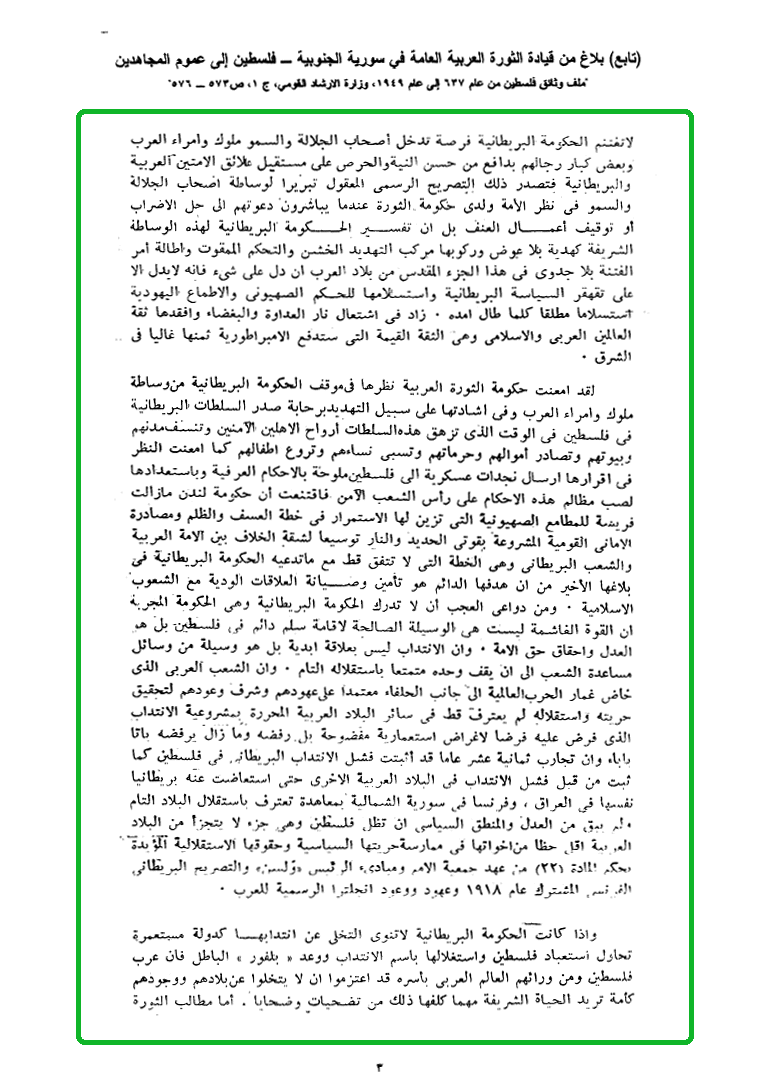 (تابع) بلاغ من قيادة الثورة العربية العامة في سورية الجنوبية ــ فلسطين إلى عموم المجاهدين
"ملف وثائق فلسطين من عام ٦٣٧ إلى عام ١٩٤٩، وزارة الارشاد القومي، ج ١، ص٥٧٣ ــ ٥٧٦"
لاتغتنم الحكومة البريطانية فرصة تدخل أصحاب الجلالة والسمو ملوك وامراء العرب
وبعض كبار رجالهم بدافع من حسن النية والحرص على مستقبل علائق الامتين العربية
والبريطانية فتصدر ذلك التصريح الرسمى المعقول تبريرا لوساطة اصحاب الجلالة
والسمو فى نظر الامة ولدى حكومة الثورة عندما يباشرون دعوتهم الى حل الاضراب
أو توقيف أعمــال العنف بل ان تفســير الحــكومة البريطانية لهذه الوساطة
الشريفة كهدية بلا عوض وركوبها مركب التهديد الخشن والتحكم الممقوت واطالة أمر
الفتنة بلا جدوى فى هذا الجزء المقدس من بلاد العرب ان دل على شىء فانه لايدل الا
على تقهقر السياسة البريطانية واستسلامها للحكم الصهيونى والاطماع اليهودية
استسلاما مطلقا كلما طال امده ٠ زاد فى اشتعال نار العداوة والبغضاء وافقدها ثقة
العالمين العربى والاسلامى وهى الثقة القيمة التى ستدفع الامبراطورية ثمنها غاليا فى
الشرق ٠
لقد امعنت حكومة الثورة العربية نظرها فى موقف الحكومة البريطانية من وساطة
ملوك وامراء العرب وفى اشادتها على سبيل التهديد برحابة صدر السلطات البريطانية
فى فلسطين فى الوقت الذى تزهق هذه السلطات أرواح الاهلين الآمنين وتنسف مدنهم
وبيوتهم وتصادر أموالهم وحرماتهم وتسبى نساءهم وتروع اطفالهم كما امعنت النظر
فى اقرارها ارسال نجدات عسكرية الى فلسطين ملوحة بالاحكام العرفية وباستعدادها
لصب مظالم هذه الاحكام على رأس الشعب الآمن فاقتنعت أن حكومة لندن مازالت
فريسة للمطامع الصهيونية التى تزين لها الاستمرار فى خطة العسف والظلم ومصادرة
الامانى القومية المشروعة بقوتى الحديد والنار توسيعا لشقة الخلاف بين الامة العربية
والشعب البريطانى وهى الخطة التى لا تتفق قط مع ماتدعيه الحكومة البريطانية فى
بلاغها الأخير من ان هدفها الدائم هو تأمين وصــيانة العلاقات الودية مع الشعوب
الاسلامية ٠ ومن دواعى العجب أن لا تدرك الحكومة البريطانية وهى الحكومة المجربة
ان القوة الغاشمة ليست هى الوسيلة الصالحة لاقامة سلم دائم فى فلسطين بل هو
العدل واحقاق حق الامة ٠ وان الانتداب ليس بعلاقة ابدية بل هو وسيلة من وسائل
مساعدة الشعب الى ان يقف وحده متمتعا باستقلاله التام ٠ وان الشعب العربى الذى
خاض غمار الحرب العالمية الى جانب الحلفاء معتمدا على عهودهم وشرف وعودهم لتحقيق
حريته واستقلاله لم يعترف قط فى سائر البلاد العربية المحررة بمشروعية الانتداب
الذى فرض عليه فرضا لاغراض استعمارية مفضوحة بل رفضه وما زال يرفضه باتا
باباء وان تجارب ثمانية عشر عاما قد أثبتت فشل الانتداب البريطانى فى فلسطين كما
ثبت من قبل فشل الانتداب فى البلاد العربية الاخرى حتى استعاضت عنه بريطانيا
نفسها فى العراق ، وفرنسا فى سورية الشمالية بمعاهدة تعترف باستقلال البلاد التام
ولم يبق من العدل والمنطق السياسى ان تظل فلسطين وهى جزء لا يتجزأ من البلاد
العربية اقل حظا من اخواتها فى ممارسة حريتها السياسية وحقوقها الاستقلالية المؤيدة
بحكم المادة (٢٢) من عهد جمعية الامم ومبادىء الرئيس «ولسن» والتصريح البريطانى
الفرنسى المشترك عام ١٩١٨ وعهود ووعود انجلترا الرسمية للعرب ٠
واذا كانت الحكومة البريطانية لاتنوى التخلى عن انتدابهــا كدولة مستعمرة
تحاول استعباد فلسطين واستغلالها باسم الانتداب ووعد « بلفور » الباطل فان عرب
فلسطين ومن ورائهم العالم العربى بأسره قد اعتزموا ان لا يتخلوا عن بلادهم ووجودهم
كامة تريد الحياة الشريفة مهما كلفها ذلك من تضحيات وضحايا . أما مطالب الثورة
٣